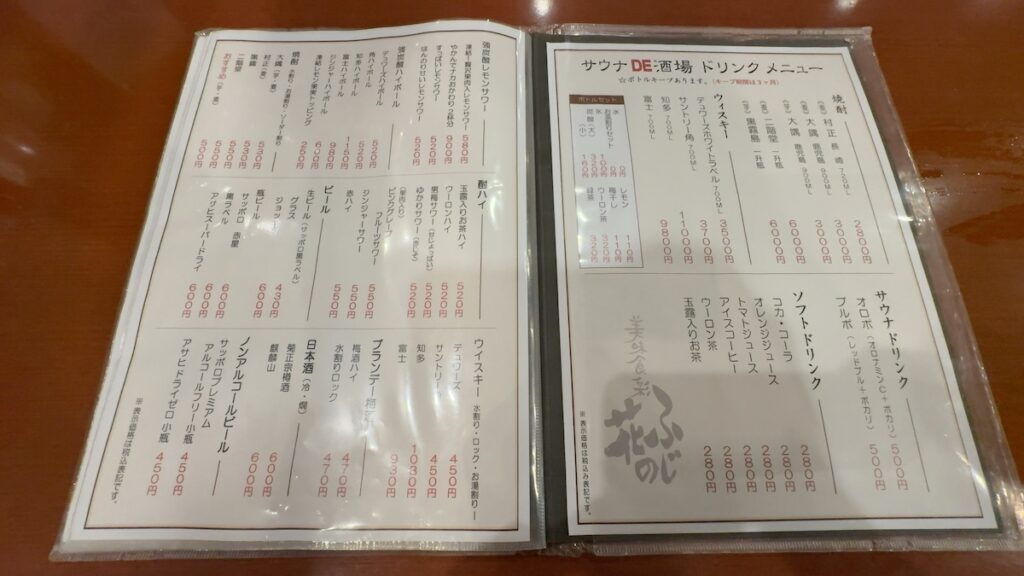 サウナDE酒場 ドリンクメニュー
☆ボトルキープあります。(キープ期限は3ヶ月)
焼酎
(麦) 村正 長崎 720ML 2500円
(芋) 大隅 鹿児島 900ML 3000円
(麦) 大隅 鹿児島 900ML 3000円
(麦) 二階堂 一升瓶 6000円
(芋) 黒霧島 一升瓶 6000円
ウィスキー
デュワーズホワイトラベル 700ML 3700円
サントリー角 700ML
知多 700ML
富士 700ML 9800円
ボトルセット
お湯割りセット
氷
水
炭酸(大)
(小)
レモン 110円
梅干し 110円
ウーロン茶 320円
緑茶 320円
サウナドリンク
オロポ(オロナミンC+ポカリ) 500円
ブルポ(レッドブル+ポカリ) 500円
ソフトドリンク
コカ・コーラ 280円
オレンジジュース 280円
トマトジュース 280円
アイスコーヒー 280円
ウーロン茶 280円
玉露入りお茶 280円
ふじ
花の
※表示価格は税込み表記です。
強炭酸レモンサワー
凍結!贅沢果肉入レモンサワー 580円
やかんでナカおかわり(2杯分) 900円
すっぱいレモンサワー 520円
ほんのり甘いレモンサワー 520円
強炭酸ハイボール
デュワーズハイボール 520円
角ハイボール 520円
知多ハイボール 1180円
富士ハイボール 980円
ジンジャーハイボール 600円
凍結レモン果実トッピング 250円
焼酎 水割り・お湯割り・ソーダー割り
大隅(芋・麦) 530円
村正(麦) 550円
黒霧 550円
二階堂 550円
おすすめ(芋・麦) 500円
酎ハイ
玉露入りお茶ハイ 520円
ウーロンハイ 520円
男梅サワー(甘じょっぱい) 520円
ゆかりサワー(赤しそ) 520円
(果肉入り)
フルーツサワー 550円
ジンジャーサワー 550円
赤ハイ 550円
ビール
生ビール(サッポロ黒ラベル)
グラス 430円
ジョッキ 600円
瓶ビール
サッポロ 赤星 600円
黒ラベル 600円
アサヒスーパードライ 600円
ウイスキー 水割り・ロック・お湯割り
デュワーズ 450円
サントリー 450円
知多 1030円
富士 930円
ブランデー梅酒
梅酒ハイ 470円
水割りロック 470円
日本酒(冷・燗)
菊正宗樽酒 600円
麒麟山 600円
ノンアルコールビール
サッポロプレミアム
アルコールフリー小瓶 450円
アサヒドライゼロ小瓶 450円
※表示価格は税込表記です。